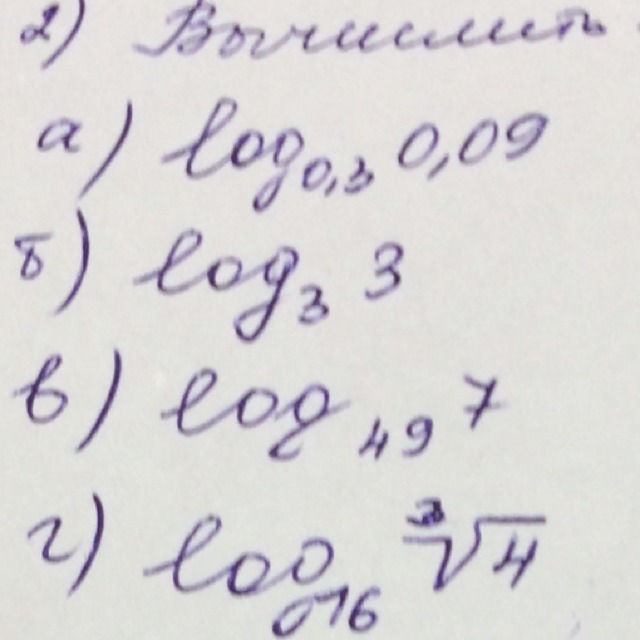 2) Вычислить
а) log₀,₃ 0,09
б) log₃ 3
в) log₄₉ 7
г) log₁₆ ∛4